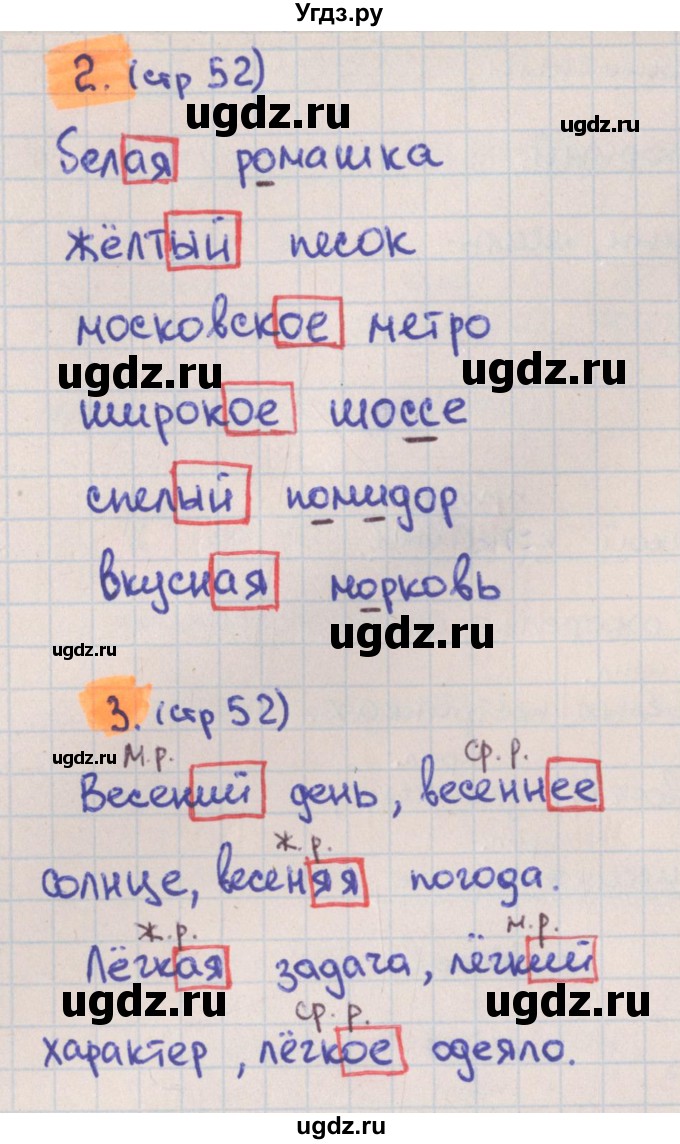 Угдз.ру
2. (стр 52)
ugdz.ru
ugdz.ru
белая ромашка
жёлтый песок
московское метро
ugdz.ru ugdz.ru
широкое шоссе
спелый помидор
вкусная морковь
ugdz.ru ugdz.ru
3. (стр 52)
ugdz.ru м.р. ср. р.
Весений день, весеннее
ж. р.
солнце, весеняя погода.
ж.р. м.р.
Лёгкая задача, лёгкий
ugdz.ru ср. р. ugdz.ru
характер, лёгкое одеяло.
ugdz.ru